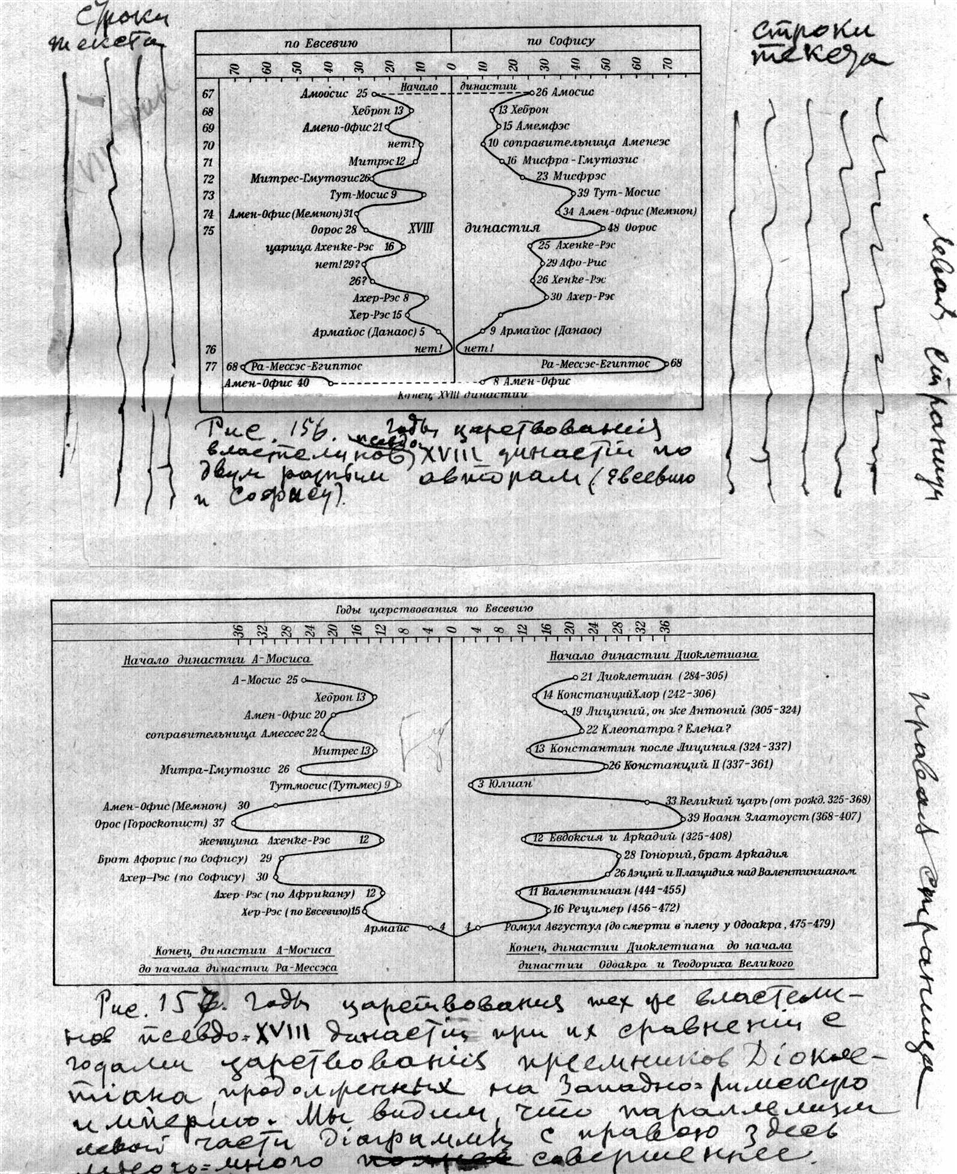 строки
текста
строки
текста
по Евсевию по Софису
70 60 50 40 30 20 10 0 10 20 30 40 50 60 70
Начало династии
67 Амоосис 25 26 Амосис
68 Хеброн 13 13 Хеброн
69 Амено-Офис 21 15 Амемфэс
70 нет! 10 соправительница Аменеэс
71 Митрэс 12 16 Мисфра-Гмутозис
72 Митрес-Гмутозис 26 23 Мисфрэс
73 Тут-Мосис 9 39 Тут-Мосис
74 Амен-Офис (Мемнон) 31 34 Амен-Офис (Мемнон)
75 Оорос 28 XVIII династия 48 Оорос
царица Ахенке-Рэс 16 25 Ахенке-Рэс
нет! 29? 29 Афо-Рис
26? 26 Хенке-Рэс
Ахер-Рэс 8 30 Ахер-Рэс
Хер-Рэс 15
Армайос (Данаос) 5 9 Армайос (Данаос)
76 нет! нет!
77 68 Ра-Мессэс-Египтос Ра-Мессэс-Египтос 68
Амен-Офис 40 8 Амен-Офис
Конец XVIII династии
Рис. 156. Годы царствования
властелинов псевдо XVIII династии по
двум разным авторам (Евсевию
и Софису).
левая страница
Годы царствования по Евсевию
36 32 28 24 20 16 12 8 4 0 4 8 12 16 20 24 28 32 36
Начало династии А-Мосиса Начало династии Диоклетиана
А-Мосис 25 21 Диоклетиан (284-305)
Хеброн 13 14 Констанций Хлор (242-306)
Амен-Офис 20 19 Лициний, он же Антоний (305-324)
соправительница Амессес 22 22 Клеопатра? Елена?
Митрес 13 13 Константин после Лициния (324-337)
Митра-Гмутозис 26 26 Констанций II (337-361)
Тутмосис (Тутмес) 9 3 Юлиан
Амен-Офис (Мемнон) 30 33 Великий царь (от рожд. 325-368)
Орос (Гороскопист) 37 39 Иоанн Златоуст (368-407)
женщина Ахенке-Рэс 12 12 Евдоксия и Аркадий (325-408)
Брат Афорис (по Софису) 29 28 Гонорий, брат Аркадия
Ахер-Рэс (по Софису) 30 26 Аэций и Плацидия над Валентинианом
Ахер-Рэс (по Африкану) 12 11 Валентиниан (444-455)
Хер-Рэс (по Евсевию) 15 16 Рецимер (456-472)
Армайс 4 4 Ромул Августул (до смерти в плену у Одоакра, 475-479)
Конец династии А-Мосиса Конец династии Диоклетиана до начала
до начала династии Ра-Мессэса династии Одоакра и Теодориха Великого
Рис. 157. Годы царствования тех же властели-
нов псевдо-XVIII династии при их сравнении с
годами царствования преемников Діокле-
тіана, продолженных на Западно-римскую
империю. Мы видим, что параллелизм
левой части діаграммы с правою здесь
много совершеннее.
правая страница